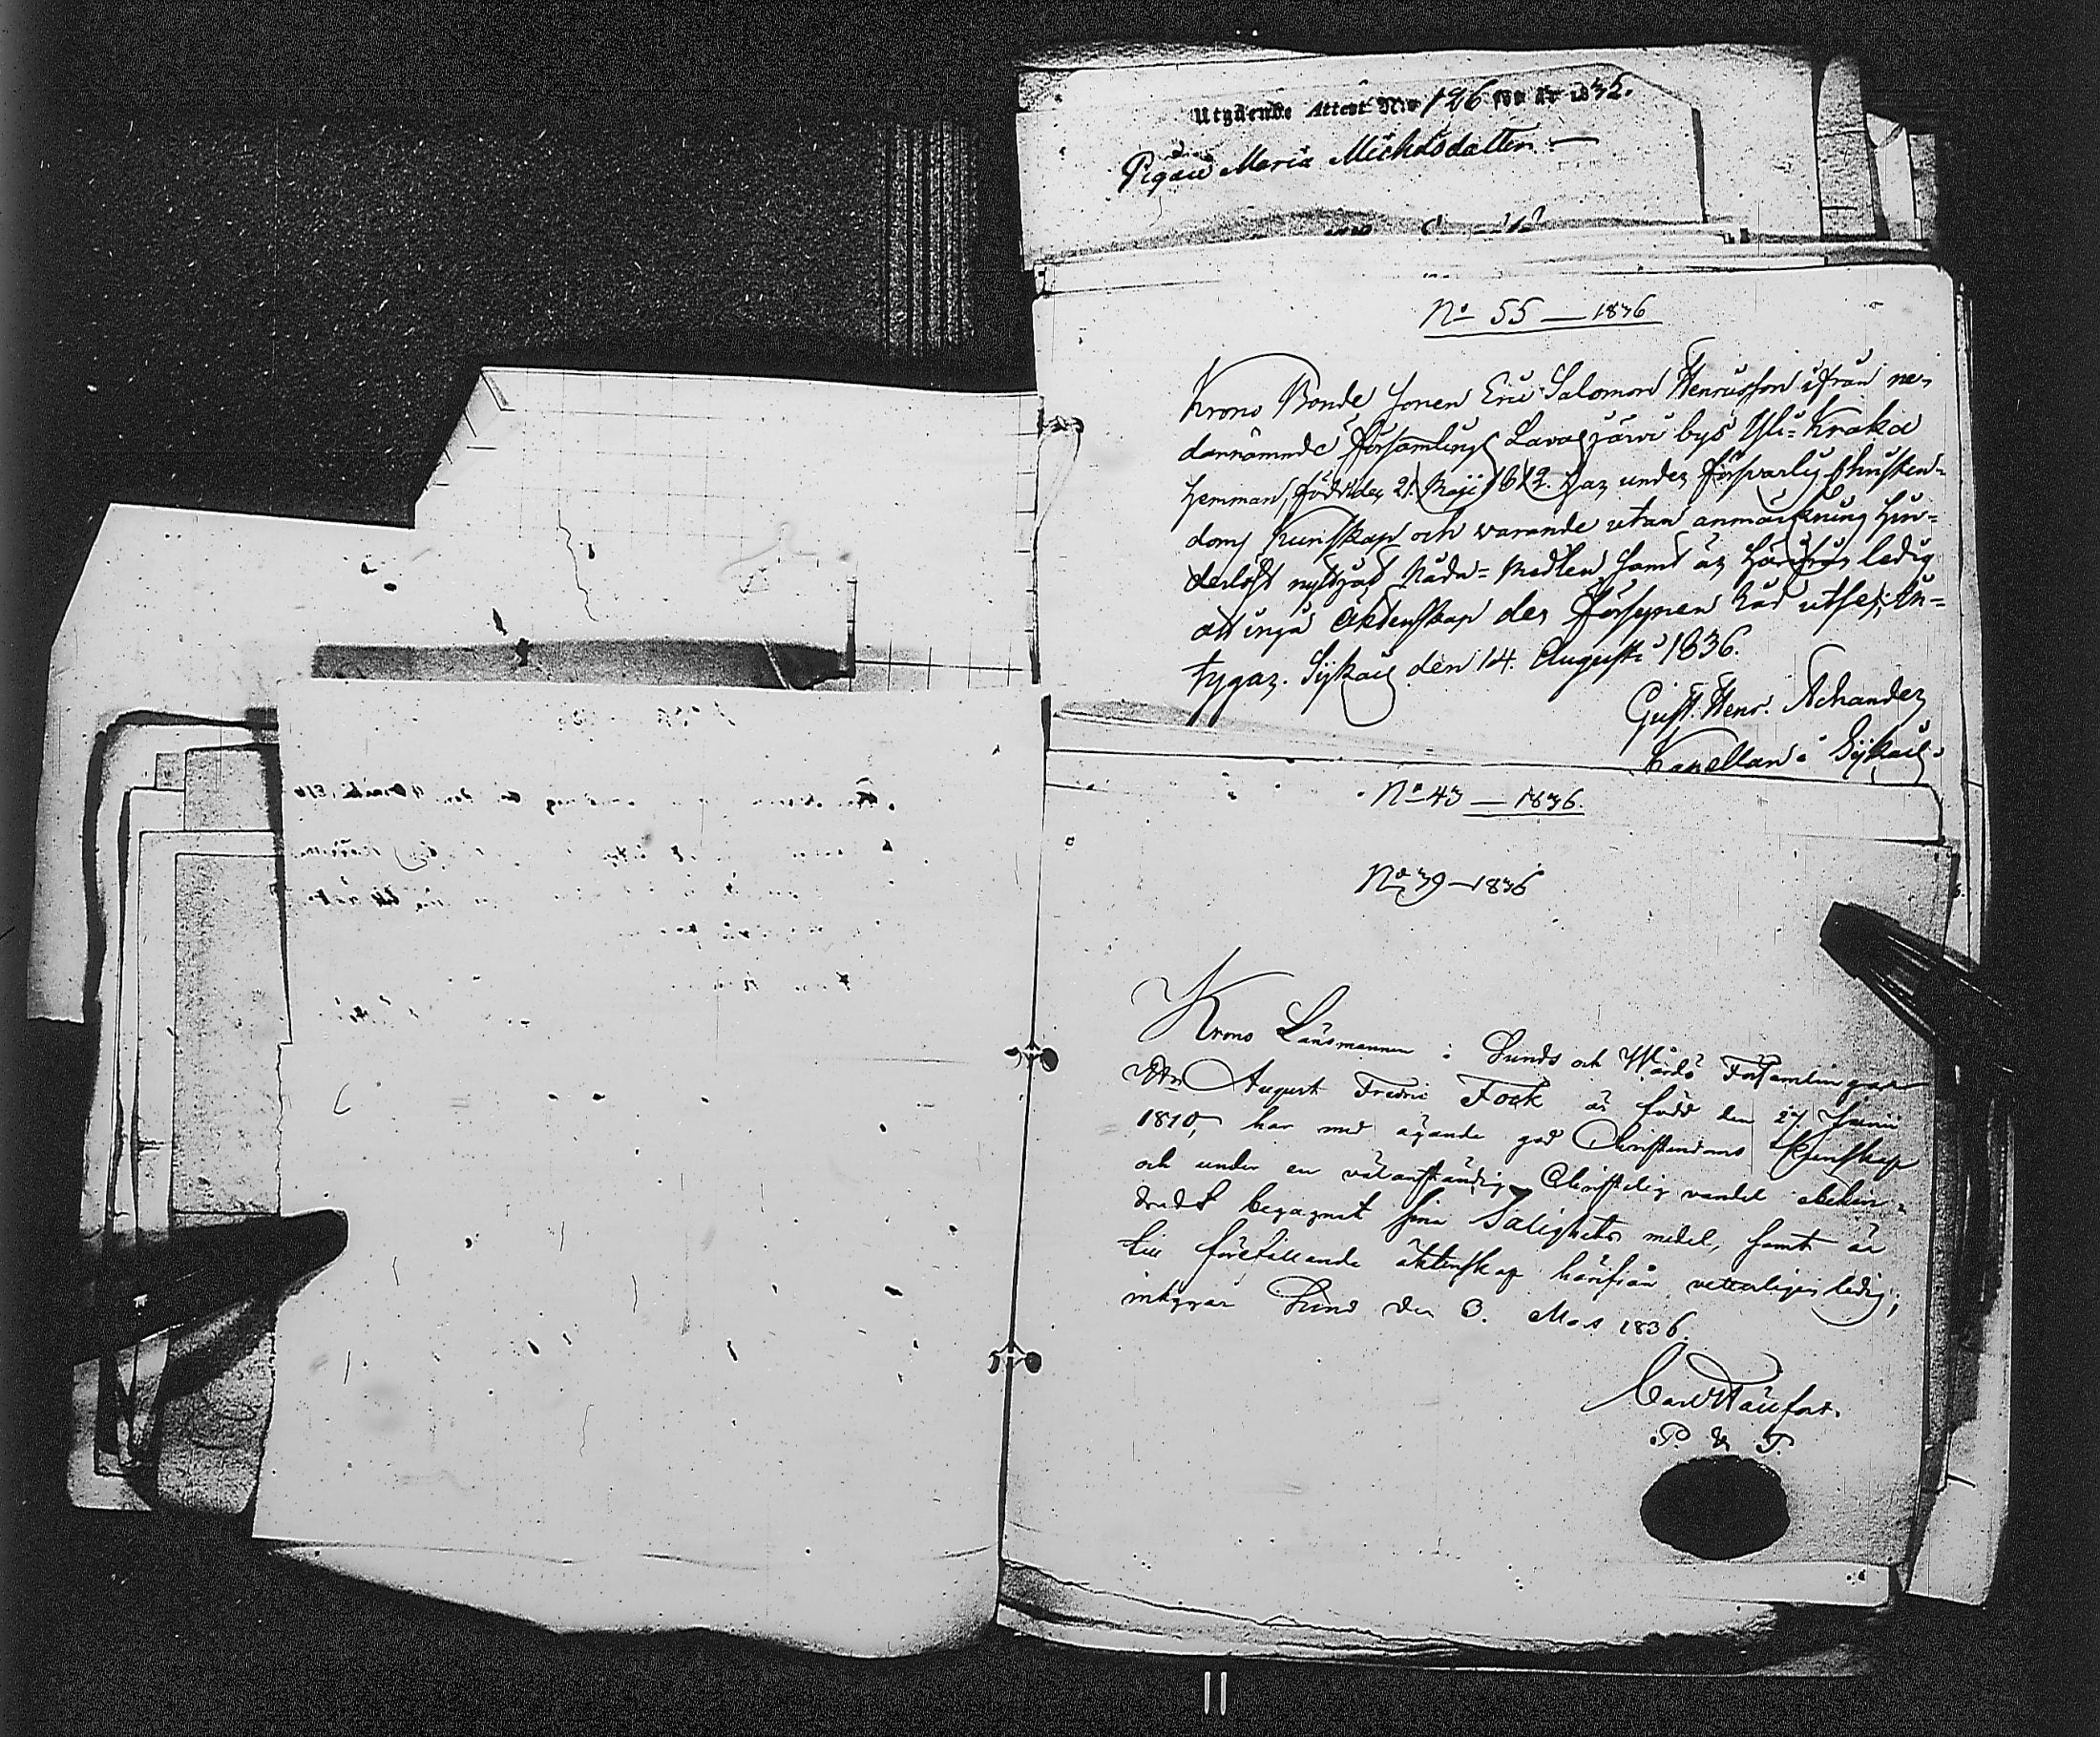 Utgående Attest Nro 126 för år 1835.
Pigan Maria Michelsdotter
No 55 — 1836
Krono Bonde Sonen Eric Salomon Henricsson ifrån ne-
dannämnde Församlings Lavasjärvi bys Yli-Kraka
Hemman, född den 21. Maji 1812. Har under försvarlig Christen-
doms kunskap och varande utan anmärkning hin-
derlöst nyttjat Nåde-Medlen samt är härifrån ledig
att ingå Äktenskap der Försynen håd utse; In-
tygar. Sijkais den 14. Augusti 1836.
Gust. Henr. Achander
Kapellan i Sijkais
No 43 — 1836.
No 39 — 1836
Krono Länsmannen i Sunds och Wårdö Församlingar
August Fredric Fock är född den 27 Junii
1810, har med ägande god Christendoms Kunskap
och under en välanständig Christelig vandel obehin-
dradt begagnat sina Salighets medel, samt är
till förefallande äktenskap härifrån vetterligen ledig;
intygar Sund den 3. Mars 1836.
Carl
P. & P.